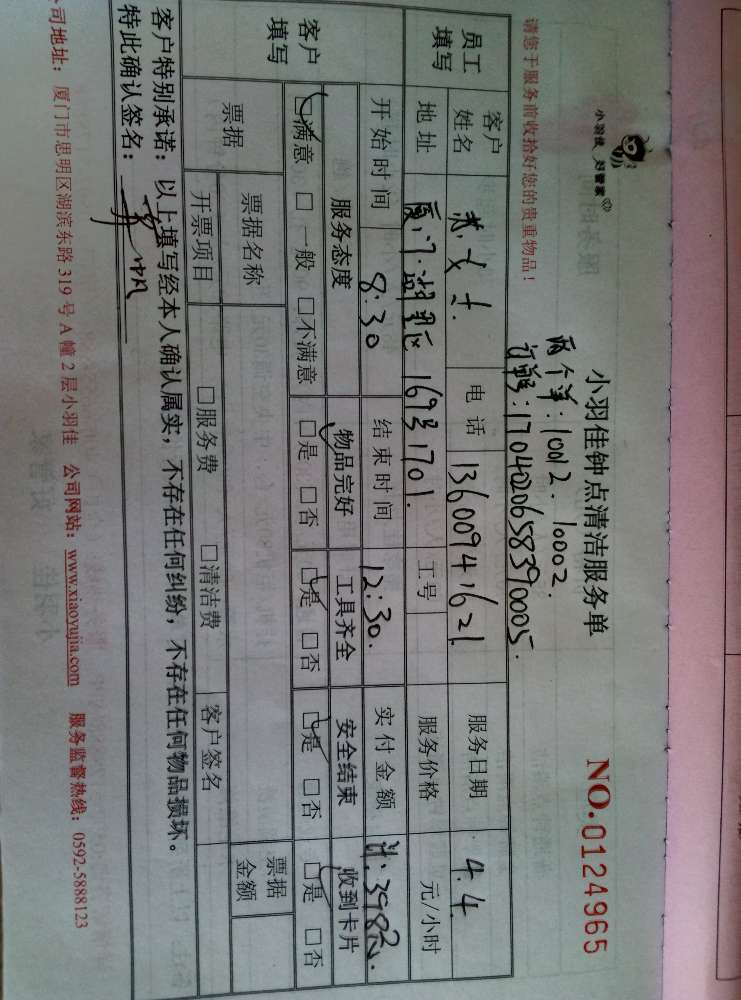 小羽佳 好管家®
小羽佳钟点清洁服务单
NO.0124965
两个单:10012.10002.
订单号:1704020658390005.
请您于服务前收拾好您的贵重物品!
员工填写
客户姓名 女士. 电话 13600941621 服务日期 4.4
地址 厦门.湖里区 169号1701. 工号 服务价格 元/小时
开始时间 8:30 结束时间 12:30. 实付金额 计:398元.
客户填写
服务态度 物品完好 工具齐全 安全结束 收到卡片
☑满意 □一般 □不满意 ☑是 □否 ☑是 □否 ☑是 □否 ☑是 □否
票据 票据名称 票据金额
开票项目 □服务费 □清洁费 客户签名
客户特别承诺:以上填写经本人确认属实,不存在任何纠纷,不存在任何物品损坏。
特此确认签名:
公司地址:厦门市思明区湖滨东路 319 号 A 幢 2 层小羽佳 公司网站:www.xiaoyujia.com 服务监督热线:0592-5888123